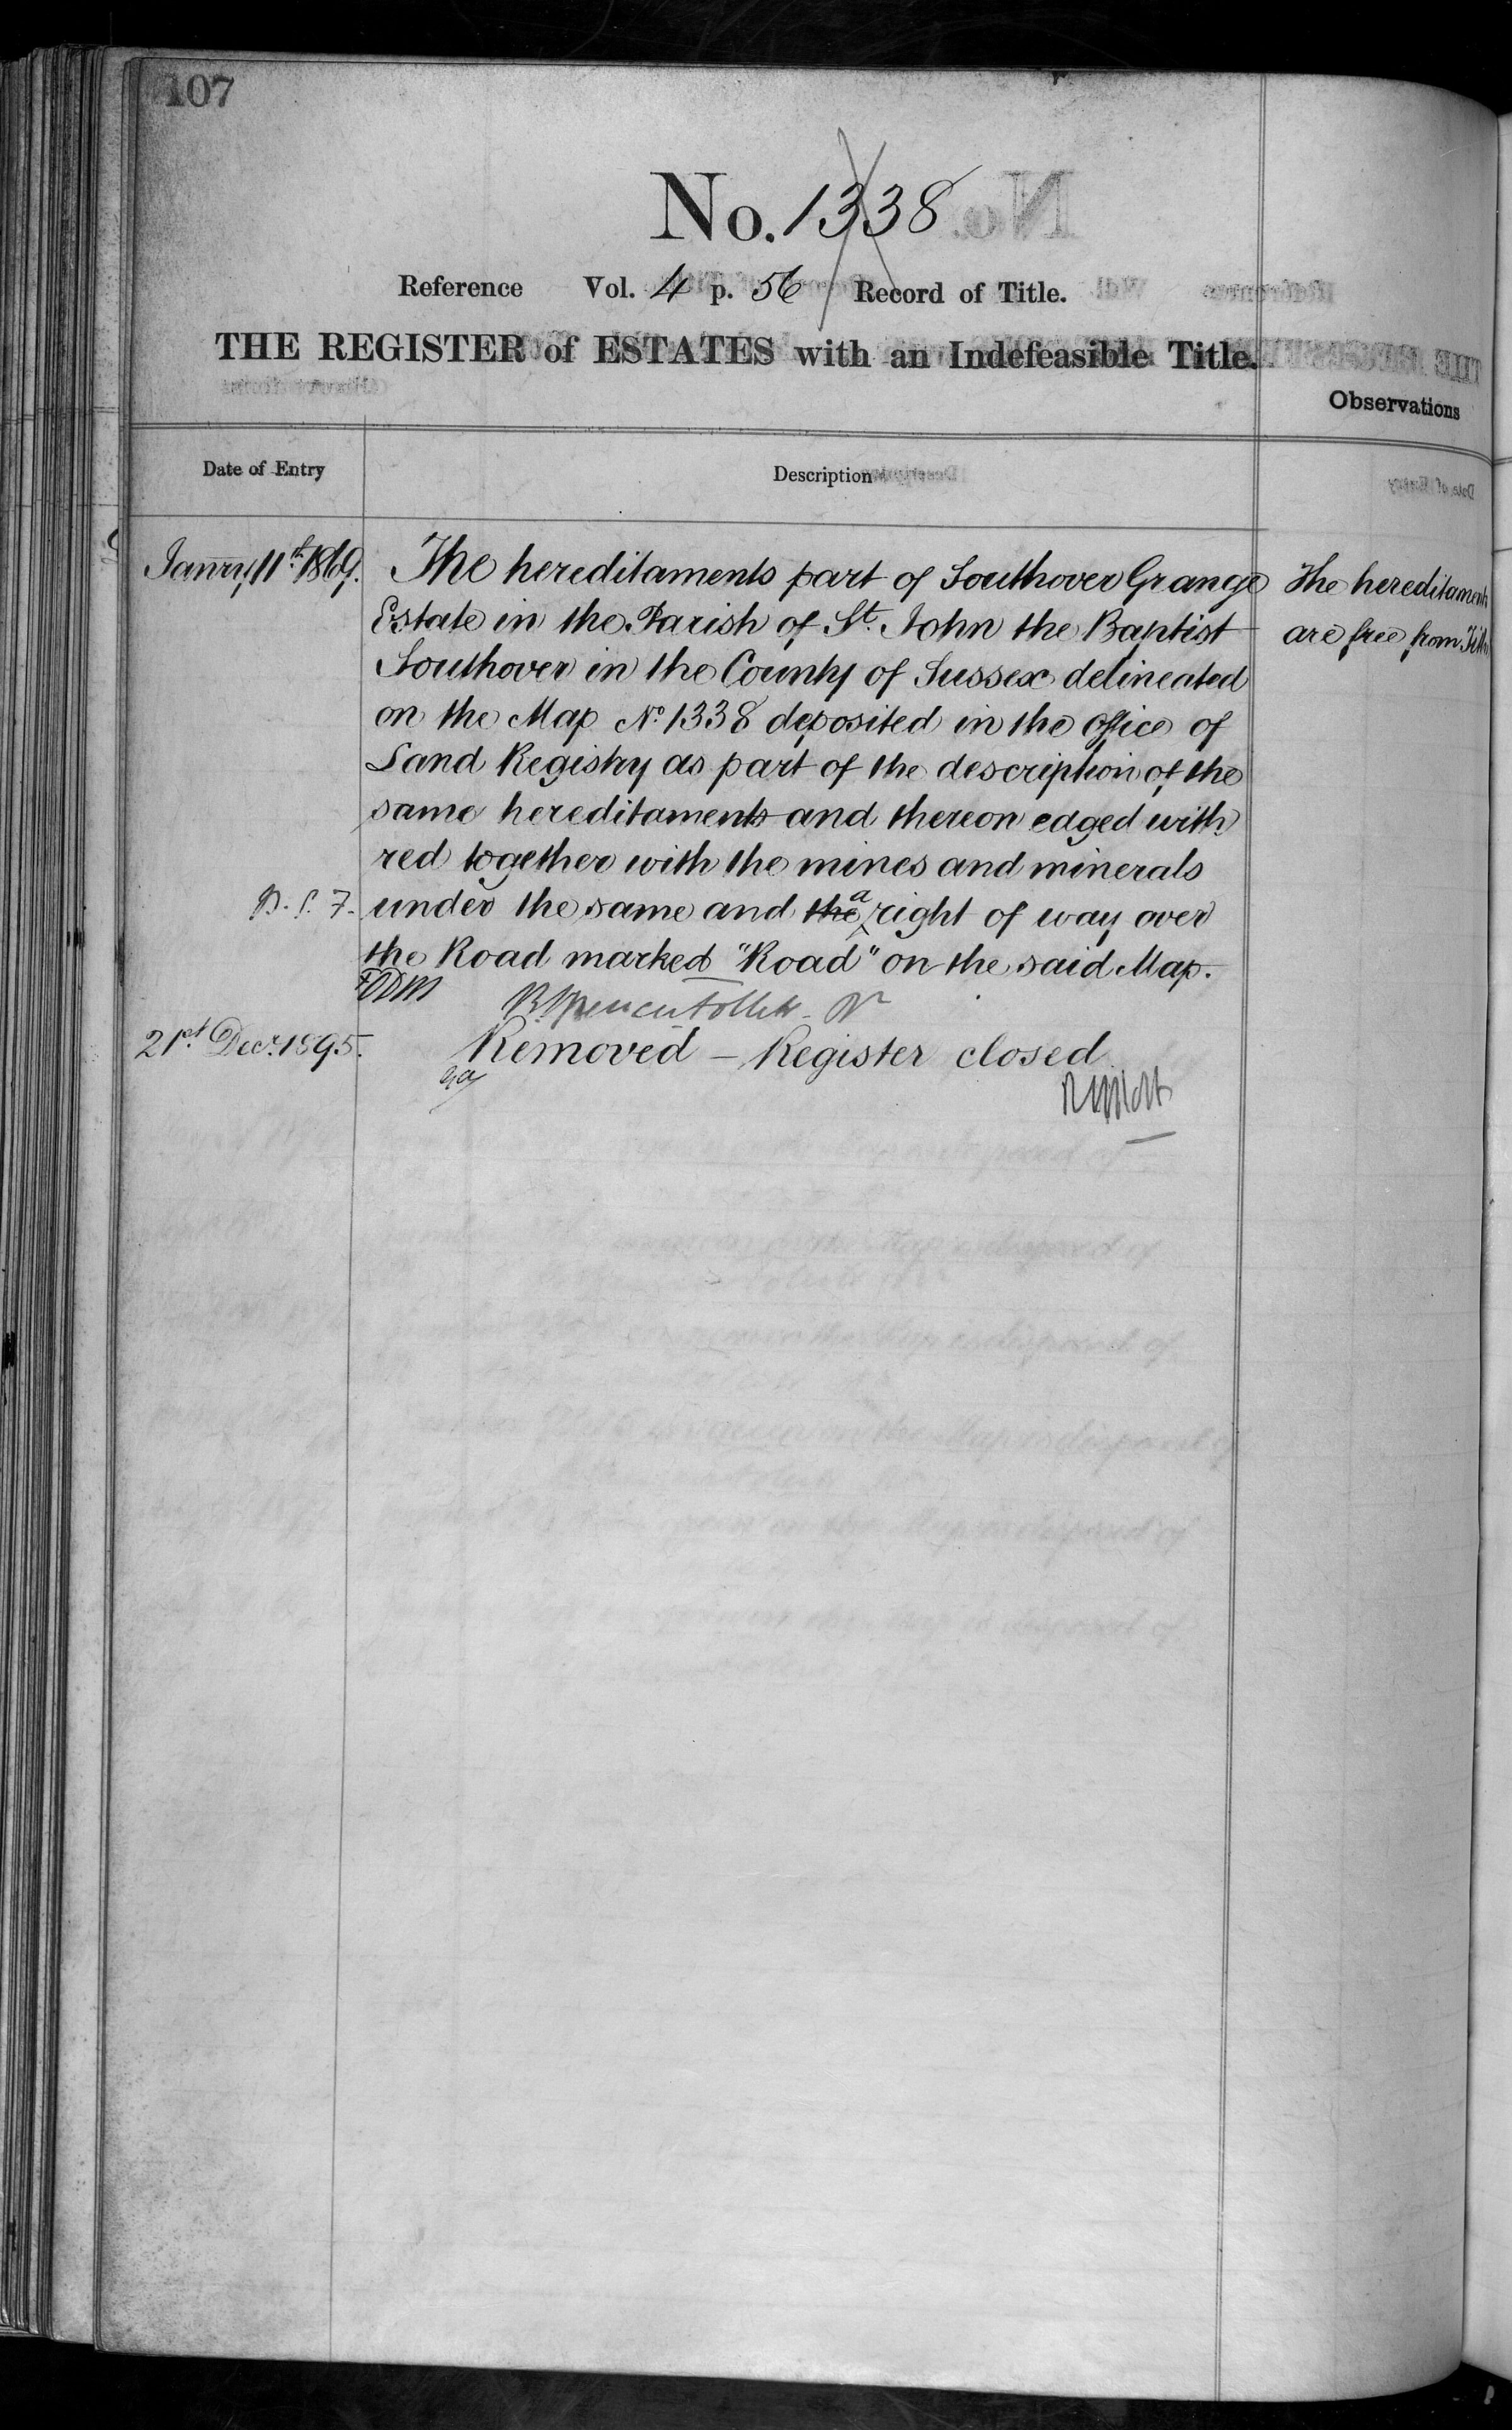 107
No. 1338
Reference Vol. 4 p. 56 Record of Title.
THE REGISTER of ESTATES with an Indefeasible Title.
Observations
Date of Entry
Description
Janry 11th 1869.
The hereditaments part of Southover Grange
Estate in the Parish of St. John the Baptist
Southover in the County of Sussex delineated
on the Map No. 1338 deposited in the office of
Land Registry as part of the description of the
same hereditaments and thereon edged with
red together with the mines and minerals
B. S. F. under the same and the a right of way over
the Road marked "Road" on the said Map.
The hereditaments
are free from
21st Decr. 1895.
Removed - Register closed